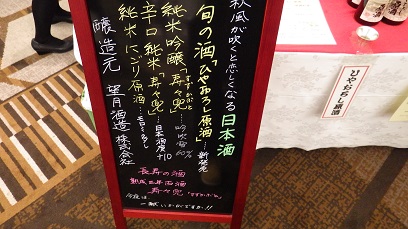 秋風が吹くと恋しくなる日本酒
旬の酒「ひやおろし原酒」…新発売
純米吟醸「寿々兜」…吟吹雪60%
すずかぶと
辛口純米「寿々兜」…日本酒度+10
純米にごり原酒…
醸造元 望月酒造株式会社
長寿の酒
熟成三年古酒
寿々兜「すずかぶと」
今夜は
一献いかがですか!!
ひやおろし
原酒